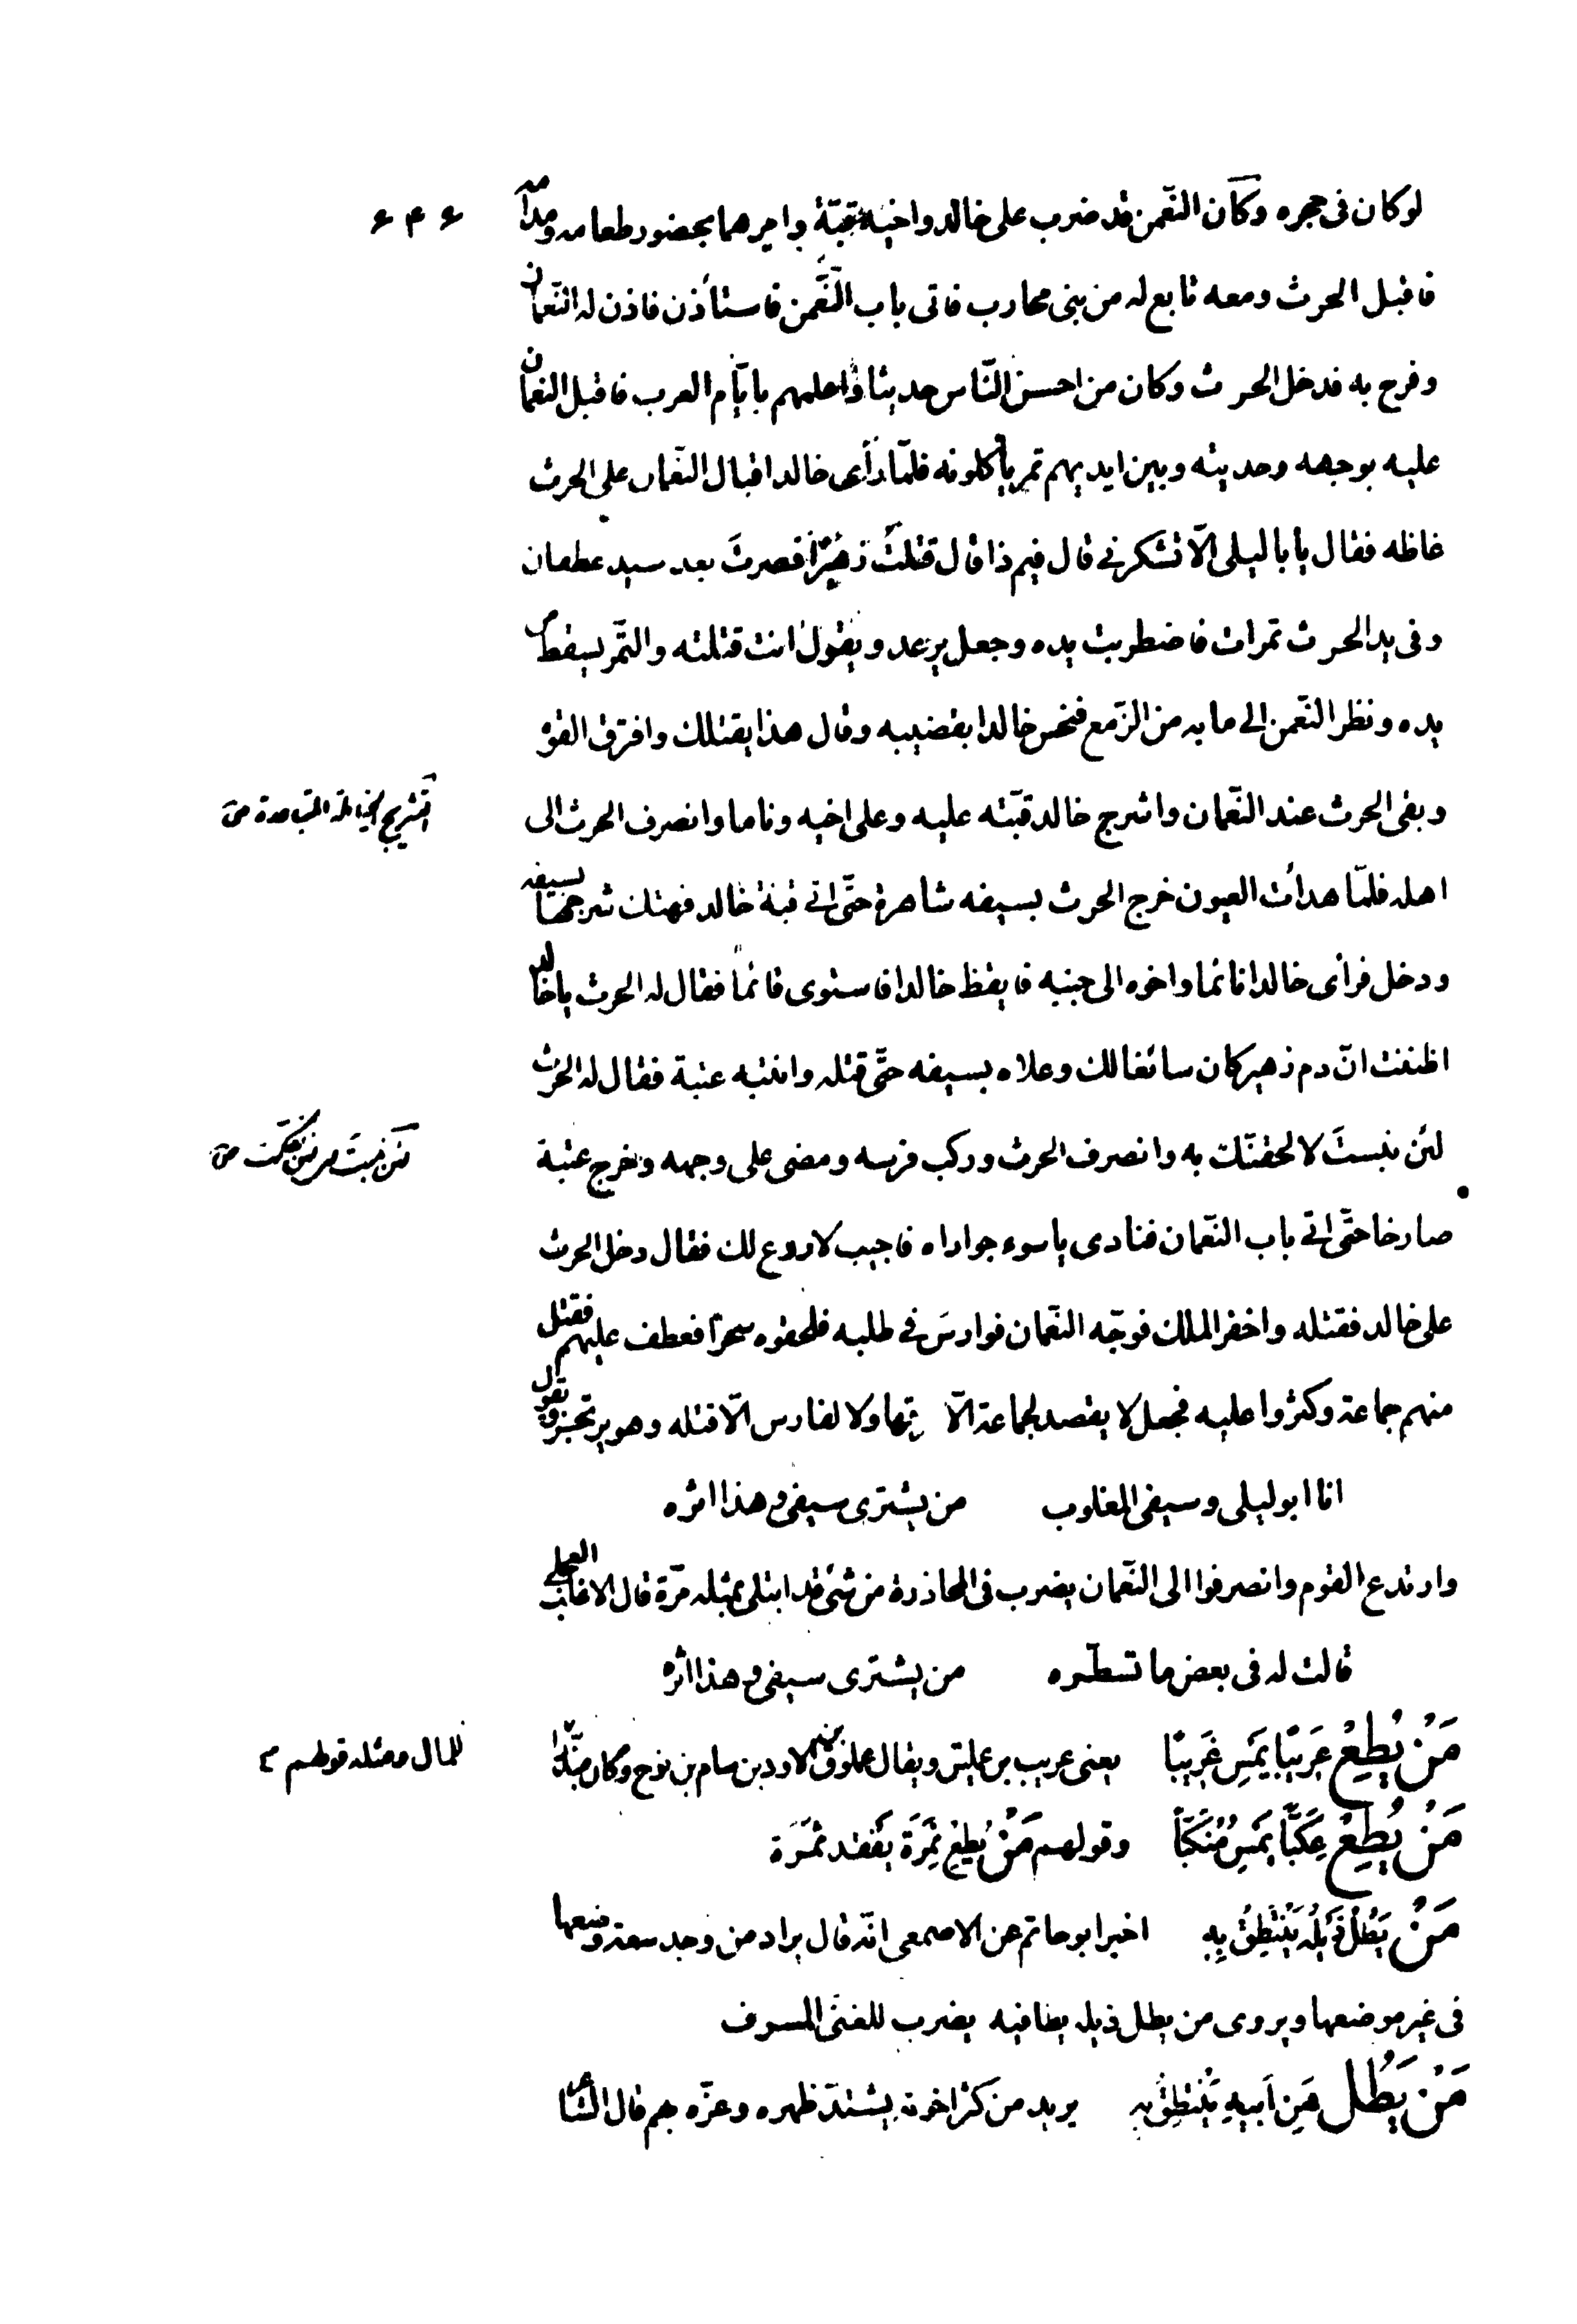 لو كان فى حجره وكان النّعمن قد ضرب على خالد واخيه قبّة وامرهما بحضور طعامه ومدامه
۶۴۶
فاقبل الحرث ومعه تابع له من بنى محارب فاتى باب النّعمن فاستأذن فاذن له النّعمان
وفرح به فدخل الحرث وكان من احسن النّاس حديثا واعلمهم بايّام العرب فاقبل النعمان
عليه بوجهه وحديثه وبين ايديهم تمر ياكلونه فلمّا رأى خالد اقبال النّعمان على الحرث
غاظه فقال يابا ليلى الّا تشكرنى قال فيم ذا قال قتلت زهيرًا فصرتَ بعد سيد غطفان
وفى يد الحرث تمرات فاضطربت يده وجعل يرعد ويقول انت قتلته والتّمر يسقط من
يده ونظر النّعمن الى ما به من الزّمع فنخس خالدا بقضيبه وقال هذا يقتلك وافترق القوم
وبقى الحرث عند النّعمان واشرج خالد قبّته عليه وعلى اخيه وناما وانصرف الحرث الى
التشريج الخياطة المتباعدة ص
اهله فلمّا هدأت العيون خرج الحرث بسيفه شاهره حتّى اتى قبة خالد فهتك شرجها بسيفه
ودخل فرأى خالدا نائما واخوه الى جنبه فايقظ خالدا فاستوى قائمًا فقال له الحرث يا خالد
اظننت انّ دم زهير كان سائغا لك وعلاه بسيفه حتّى قتله وانتبه عتبة فقال له الحرث
لئن نبستَ لالحقنّك به وانصرف الحرث وركب فرسه ومضى على وجهه وخرج عتبة
صارخا حتّى اتى باب النّعمان فنادى يا سوء جواراه فاجيب لا روع لك فقال دخل الحرث
على خالد فقتله واخفر الملك فوجّه النّعمان فوارسَ فى طلبه فلحقوه سحرًا فعطف عليهم فقتل
منهم جماعة وكثروا عليه فجعل لا يقصد لجماعة الّا ولا لفارس الّا قتله وهو يرتجز ويقول
انا ابو ليلى وسيفى المعلوب من يشترى سيفى وهذا اثره
وارتدع القوم وانصرفوا الى النّعمان يضرب فى المحاذرة من شئ قد ابتلى بمثله مرّة قال الاغلب العجلى
قالت له فى بعض ما تسطّره من يشترى سيفى وهذا اثره
مَنْ يُطِعْ عَرِيبًا يُمْسِ غَرِيبًا يعنى عريب بن عمليق ويقال عملوق بن لاود بن سام بن نوح وكان مبذّرا
للمال ومثله قولهم
مَنْ يُطِعْ عِكَبًّا يُمْسِ مُنْكَبًّا وقولهم مَنْ يُطِعْ نَمِرَة يَفْقِد ثَمَرَة
مَنْ يَطُلْ ذَيْلُه يَنْتَطِقْ بِهِ اخبر ابو حاتم عن الاصمعى انّه قال يراد من وجد سعة وضعها
فى غير موضعها ويروى من يطل ذيله يطا فيه يضرب للغنى المسرف
مَنْ يَطُل هَنِ اَبِيهِ يَنْتَطِقْ بِه يريد من كثر اخوته يشتدّ ظهره وعزّه بهم قال الشاعر